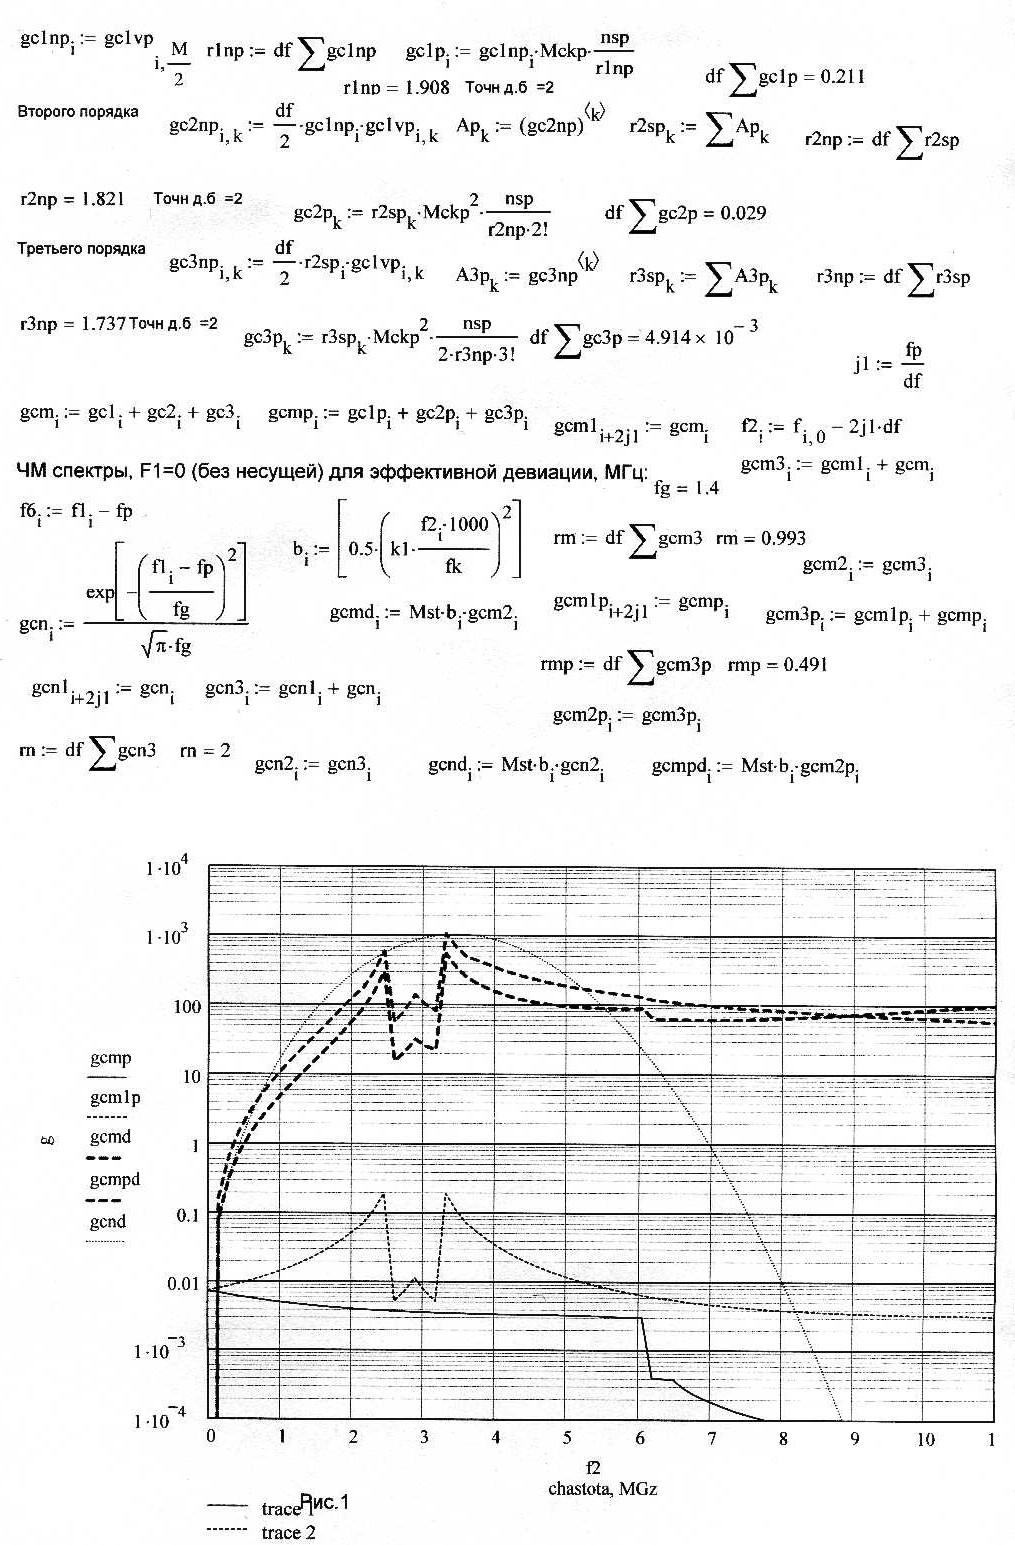 gc1np_i := gc1vp_{i, M/2} r1np := df ∑gc1np gc1p_i := gc1np_i·Mckp·nsp/r1np
r1np = 1.908 Точн д.б =2 df ∑gc1p = 0.211
Второго порядка
gc2np_{i,k} := df/2·gc1np_i·gc1vp_{i,k} Ap_k := (gc2np)^⟨k⟩ r2sp_k := ∑Ap_k r2np := df ∑r2sp
r2np = 1.821 Точн д.б =2 gc2p_k := r2sp_k·Mckp^2·nsp/(r2np·2!) df ∑gc2p = 0.029
Третьего порядка
gc3np_{i,k} := df/2·r2sp_i·gc1vp_{i,k} A3p_k := gc3np^⟨k⟩ r3sp_k := ∑A3p_k r3np := df ∑r3sp
r3np = 1.737 Точн д.б =2 gc3p_k := r3sp_k·Mckp^2·nsp/(2·r3np·3!) df ∑gc3p = 4.914 × 10^-3
j1 := fp/df
gcm_i := gc1_i + gc2_i + gc3_i gcmp_i := gc1p_i + gc2p_i + gc3p_i gcm1_{i+2j1} := gcm_i f2_i := f_{i,0} − 2j1·df
ЧМ спектры, F1=0 (без несущей) для эффективной девиации, МГц: fg = 1.4 gcm3_i := gcm1_i + gcm_i
f6_i := f1_i − fp
b_i := [0.5·(k1·f2_i·1000/fk)^2] rm := df ∑gcm3 rm = 0.993
gcm2_i := gcm3_i
gcn_i := exp[−((f1_i − fp)/fg)^2]/(√π·fg) gcmd_i := Mst·b_i·gcm2_i gcm1p_{i+2j1} := gcmp_i gcm3p_i := gcm1p_i + gcmp_i
rmp := df ∑gcm3p rmp = 0.491
gcn1_{i+2j1} := gcn_i gcn3_i := gcn1_i + gcn_i
gcm2p_i := gcm3p_i
rn := df ∑gcn3 rn = 2 gcn2_i := gcn3_i gcnd_i := Mst·b_i·gcn2_i gcmpd_i := Mst·b_i·gcm2p_i
1·10^4
1·10^3
100
10
1
0.1
0.01
1·10^-3
1·10^-4
gcmp
gcm1p
gcmd
gcmpd
gcnd
0 1 2 3 4 5 6 7 8 9 10 1
f2
chastota, MGz
trace 1 Рис.1
trace 2